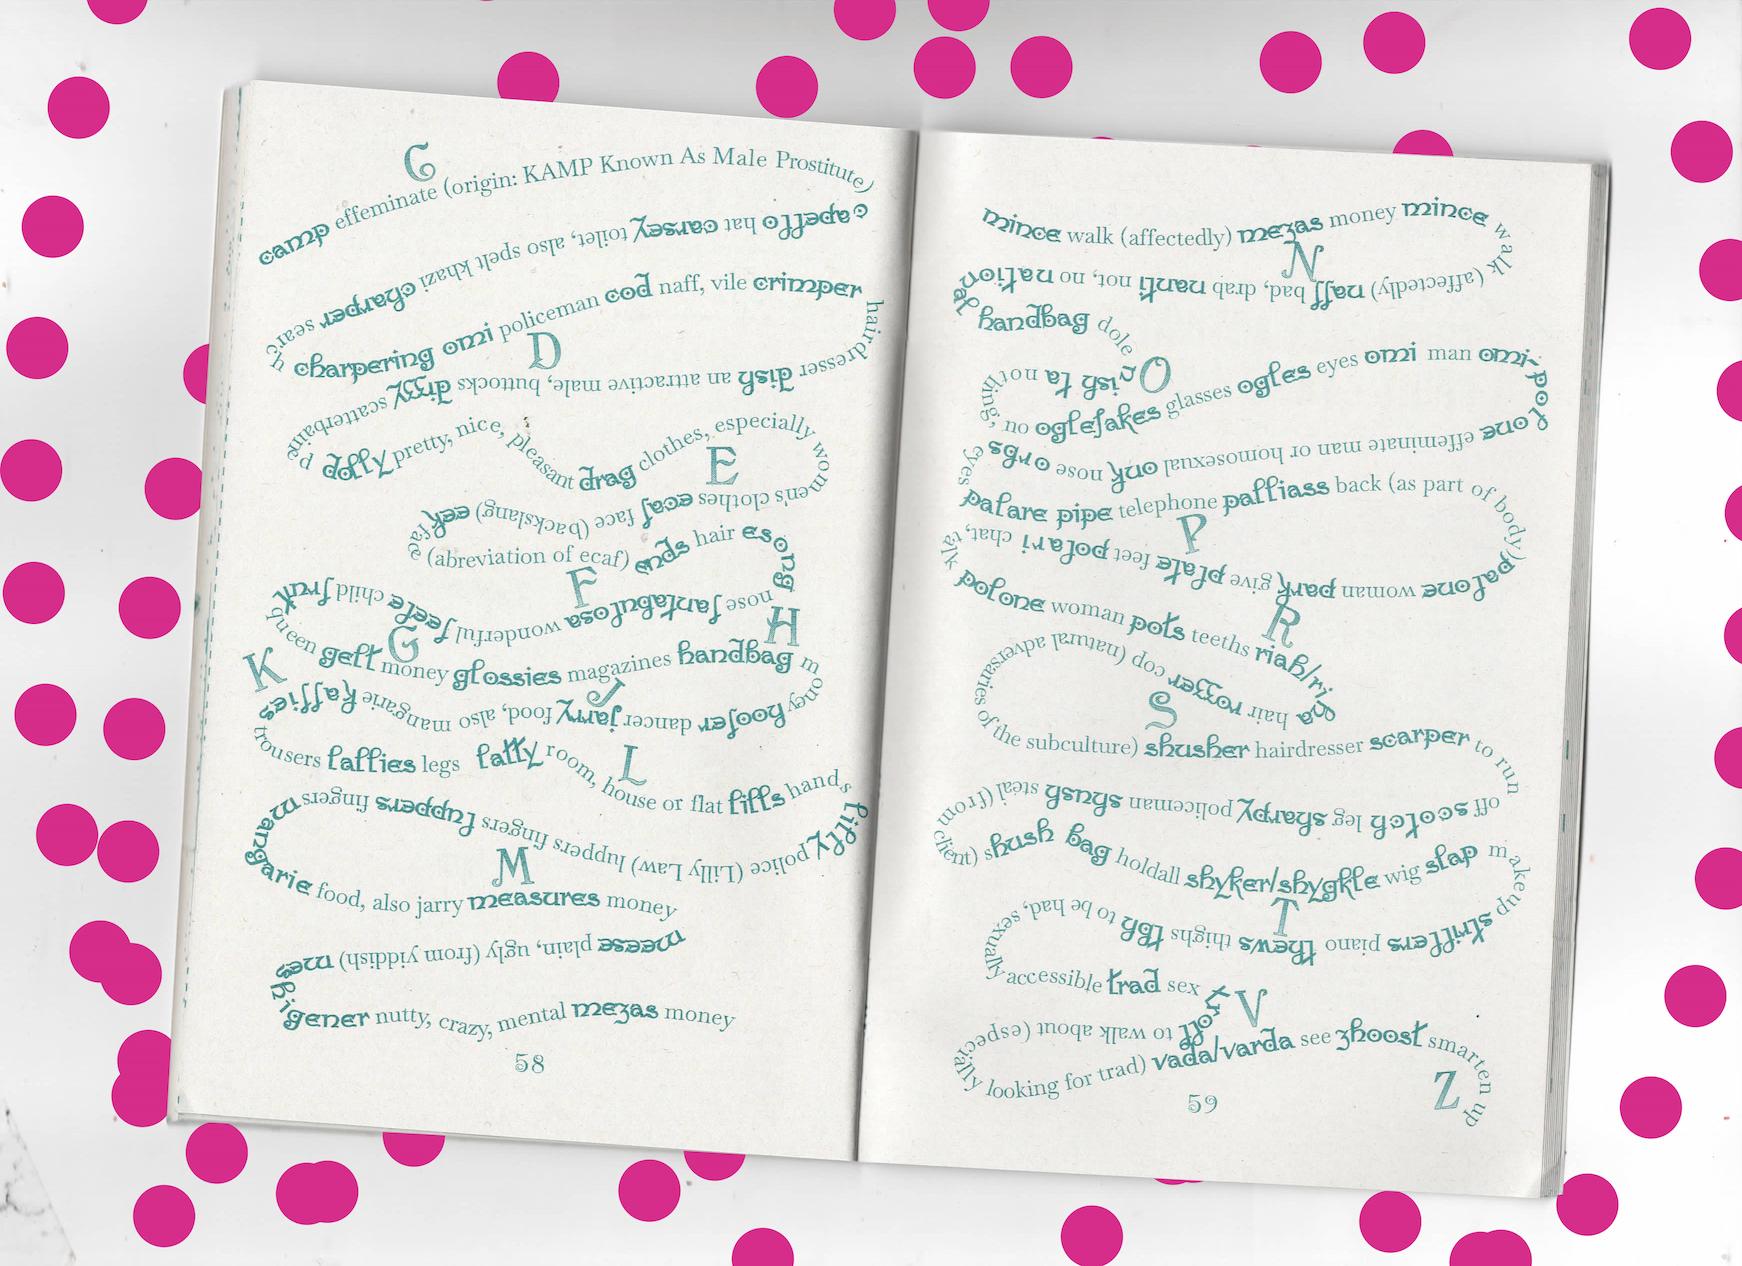 C
camp effeminate (origin: KAMP Known As Male Prostitute)
capello hat carsey toilet, also spelt khazi charper search
charpering omi policeman cod naff, vile crimper hairdresser
D
dish an attractive male, buttocks dizzy scatterbained
dolly pretty, nice, pleasant drag clothes, especially women's clothes
E
ecaf face (backslang) eek face
(abreviation of ecaf) ends hair esong nose
F
fantabulosa wonderful feele child fruit queen
G
gelt money glossies magazines
H
handbag money
hoofer dancer
J
jarry food, also mangarie
K
kaffies trousers
L
lallies legs latty room, house or flat lills hands
lilly police (Lilly Law) luppers fingers luppers fingers
M
mangarie food, also jarry measures money
meese plain, ugly (from yiddish) meshigener nutty, crazy, mental mezas money
58
mince walk (affectedly) mezas money mince walk (affectedly)
N
naff bad, drab nanti not, no national handbag dole
nishta nothing, no
O
oglefakes glasses ogles eyes omi man omi-polone effeminate man or homosexual onk nose orbs eyes
palare pipe telephone palliass back (as part of body)
P
palone woman park give plate feet polari chat, talk
polone woman pots teeths
R
riah/riha hair rozzer cop (natural adversaries of the subculture)
S
shusher hairdresser scarper to run off
scotch leg sharpy policeman shush steal (from client)
shush bag holdall shyker/shygkle wig slap makeup
strillers piano
T
thews thighs tbh to be had, sexually accessible
trad sex troll to walk about (especially looking for trad)
V
vada/varda see zhoost smarten up
Z
59